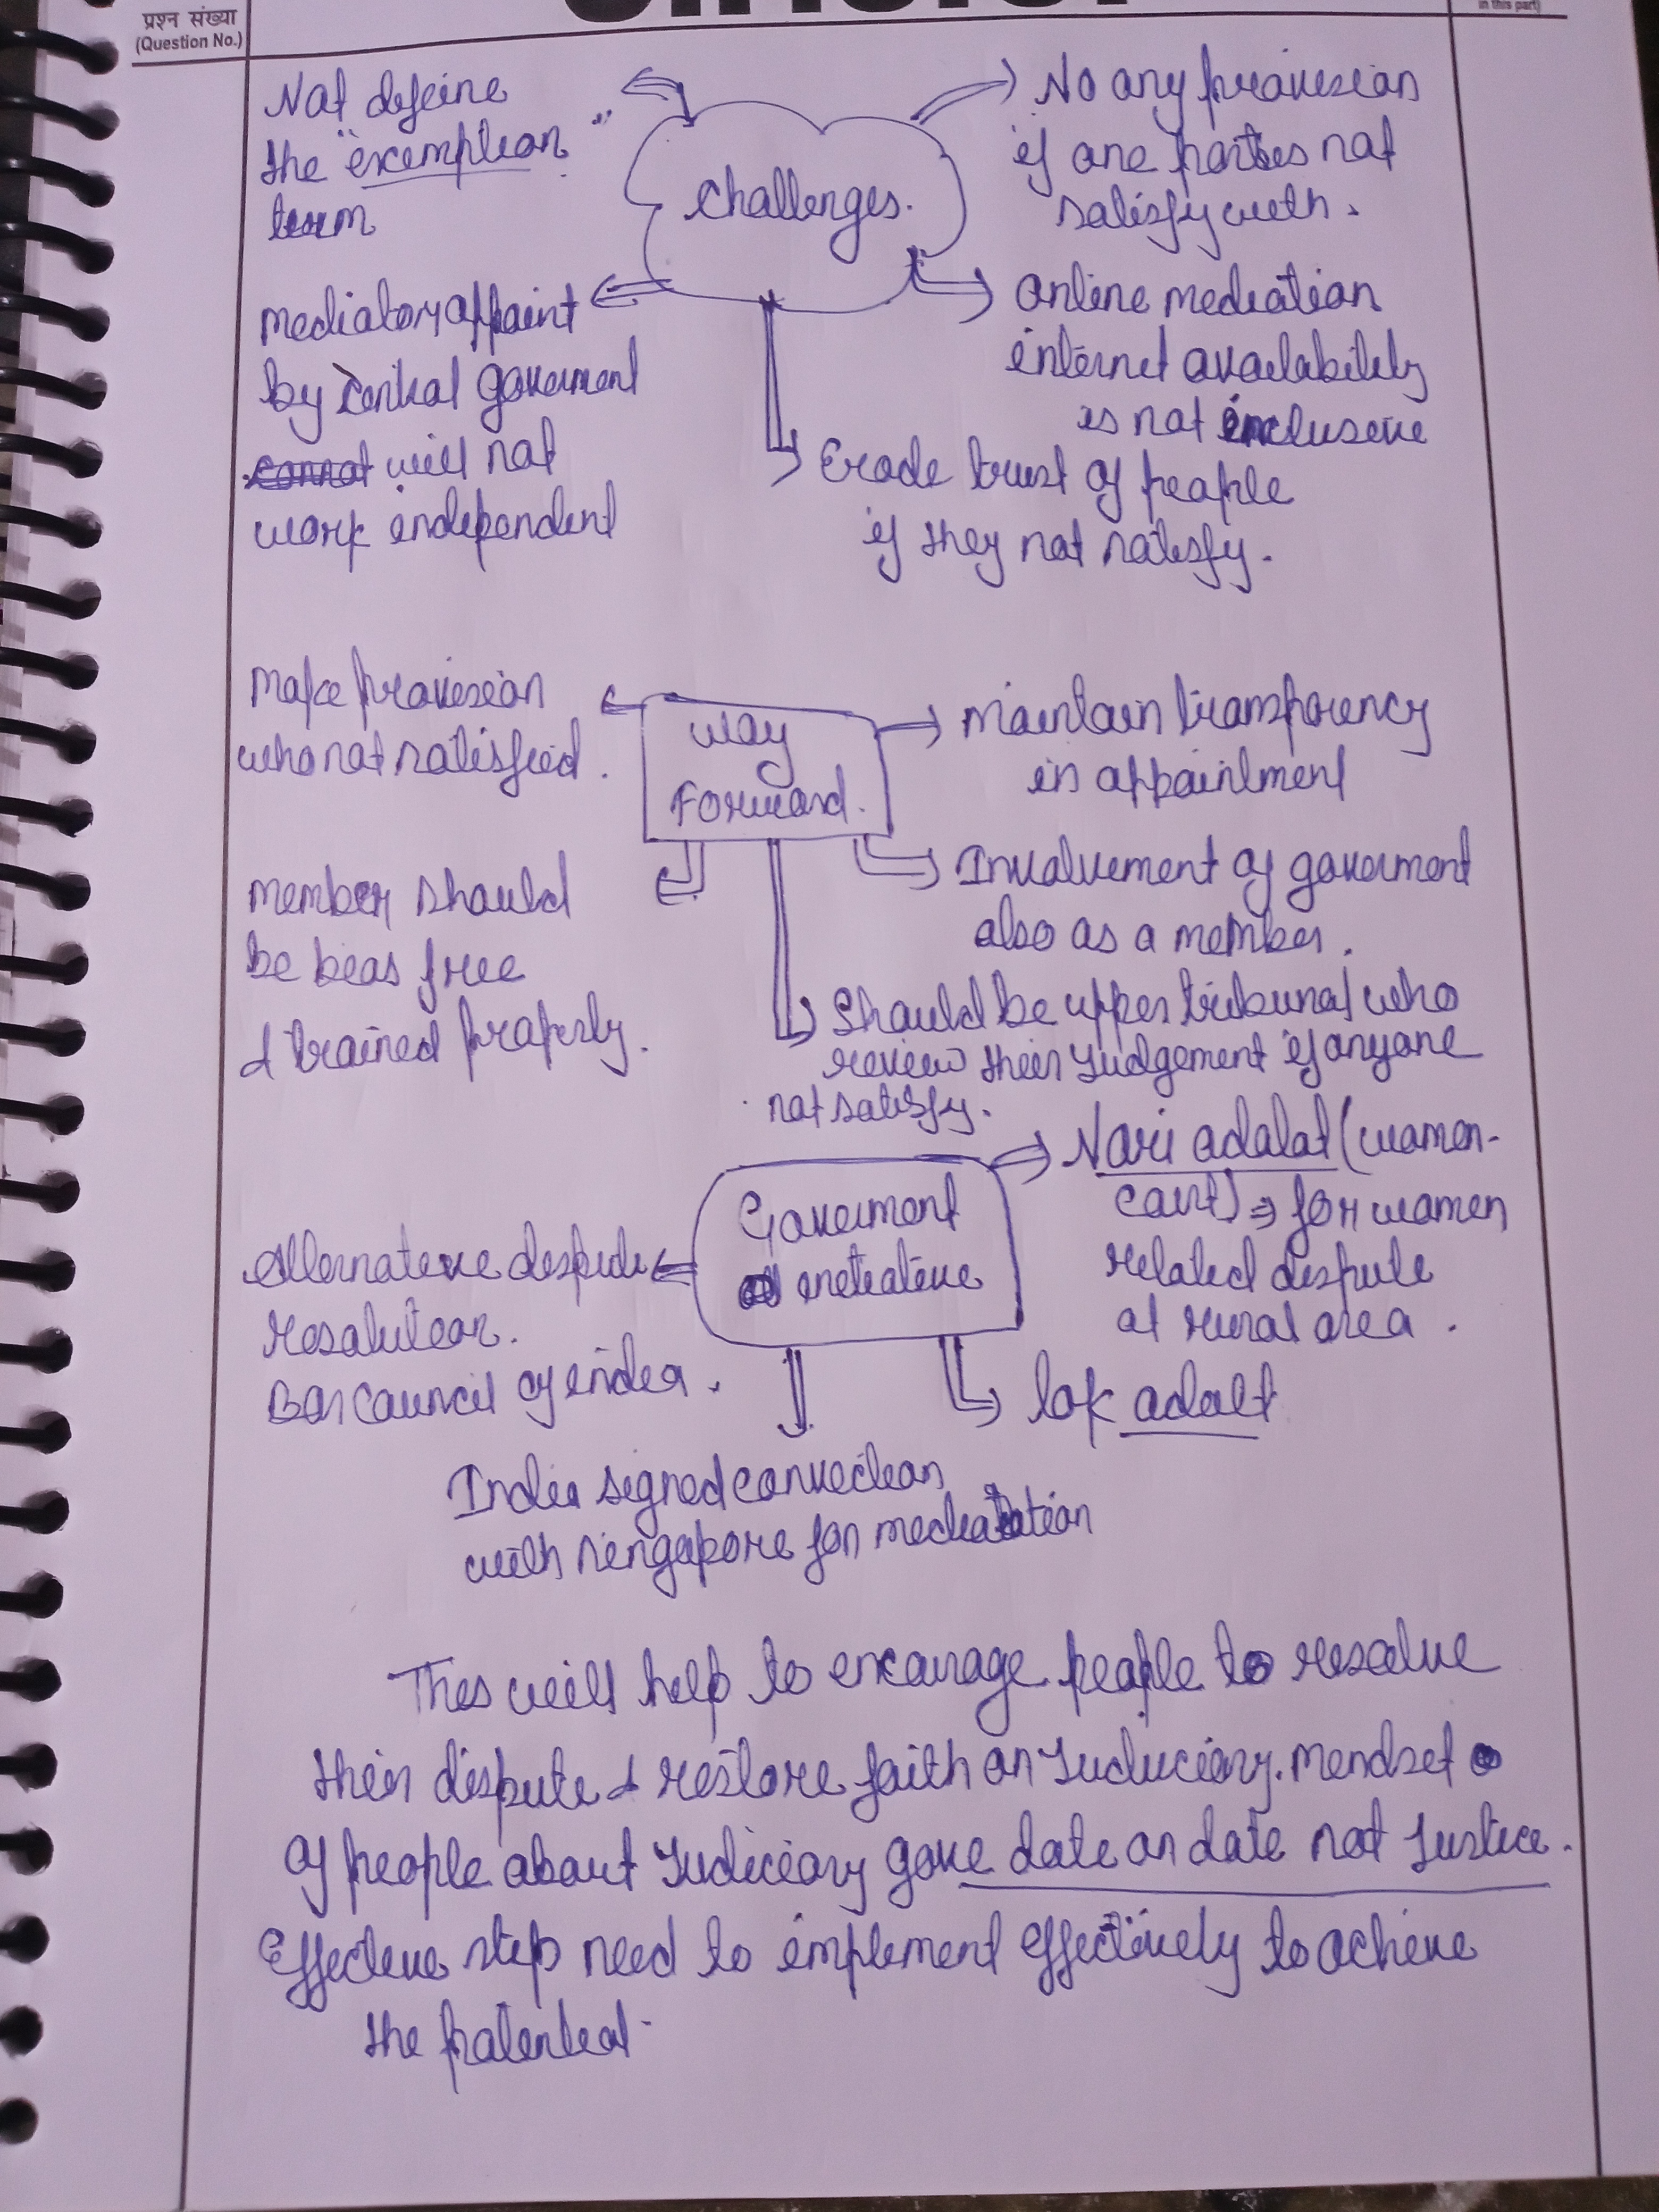 प्रश्न संख्या
(Question No.)
in this part)
Not define
the "exemption"
term
Challenges.
No any provision
if one parties not
satisfy with.
mediatory appoint
by central goverment
cannot will not
work independent
Online mediation
internet availability
is not inclusive
Erode trust of people
if they not satisfy.
Make provision
who not satisfied.
Way
Forward.
Maintain transparency
in appointment
member should
be bias free
& trained properly.
Involvement of goverment
also as a member.
Should be upper tribunal who
review their Judgement if anyone
not satisfy.
Goverment
initiative
Nari adalat (women-
court) ⇒ for women
related dispute
at rural area.
Alternative dispute
resolution.
Bar Council of india.
lok adalt
India signed convection
with singapore for mediation
This will help to encourage people to resolve
their dispute & restore faith on Juduciary. Mendset
of people about Judiciary gove date on date not Justice.
Effective step need to implement effectively to achieve
the potential.